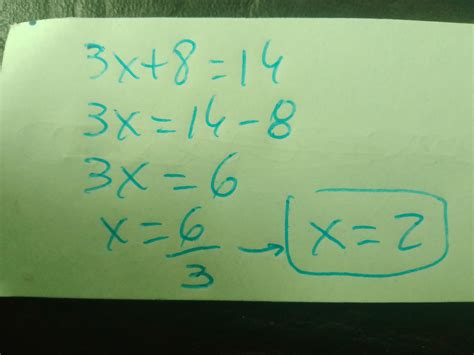 3x+8=14
3x=14-8
3x=6
x=6/3 → x=2